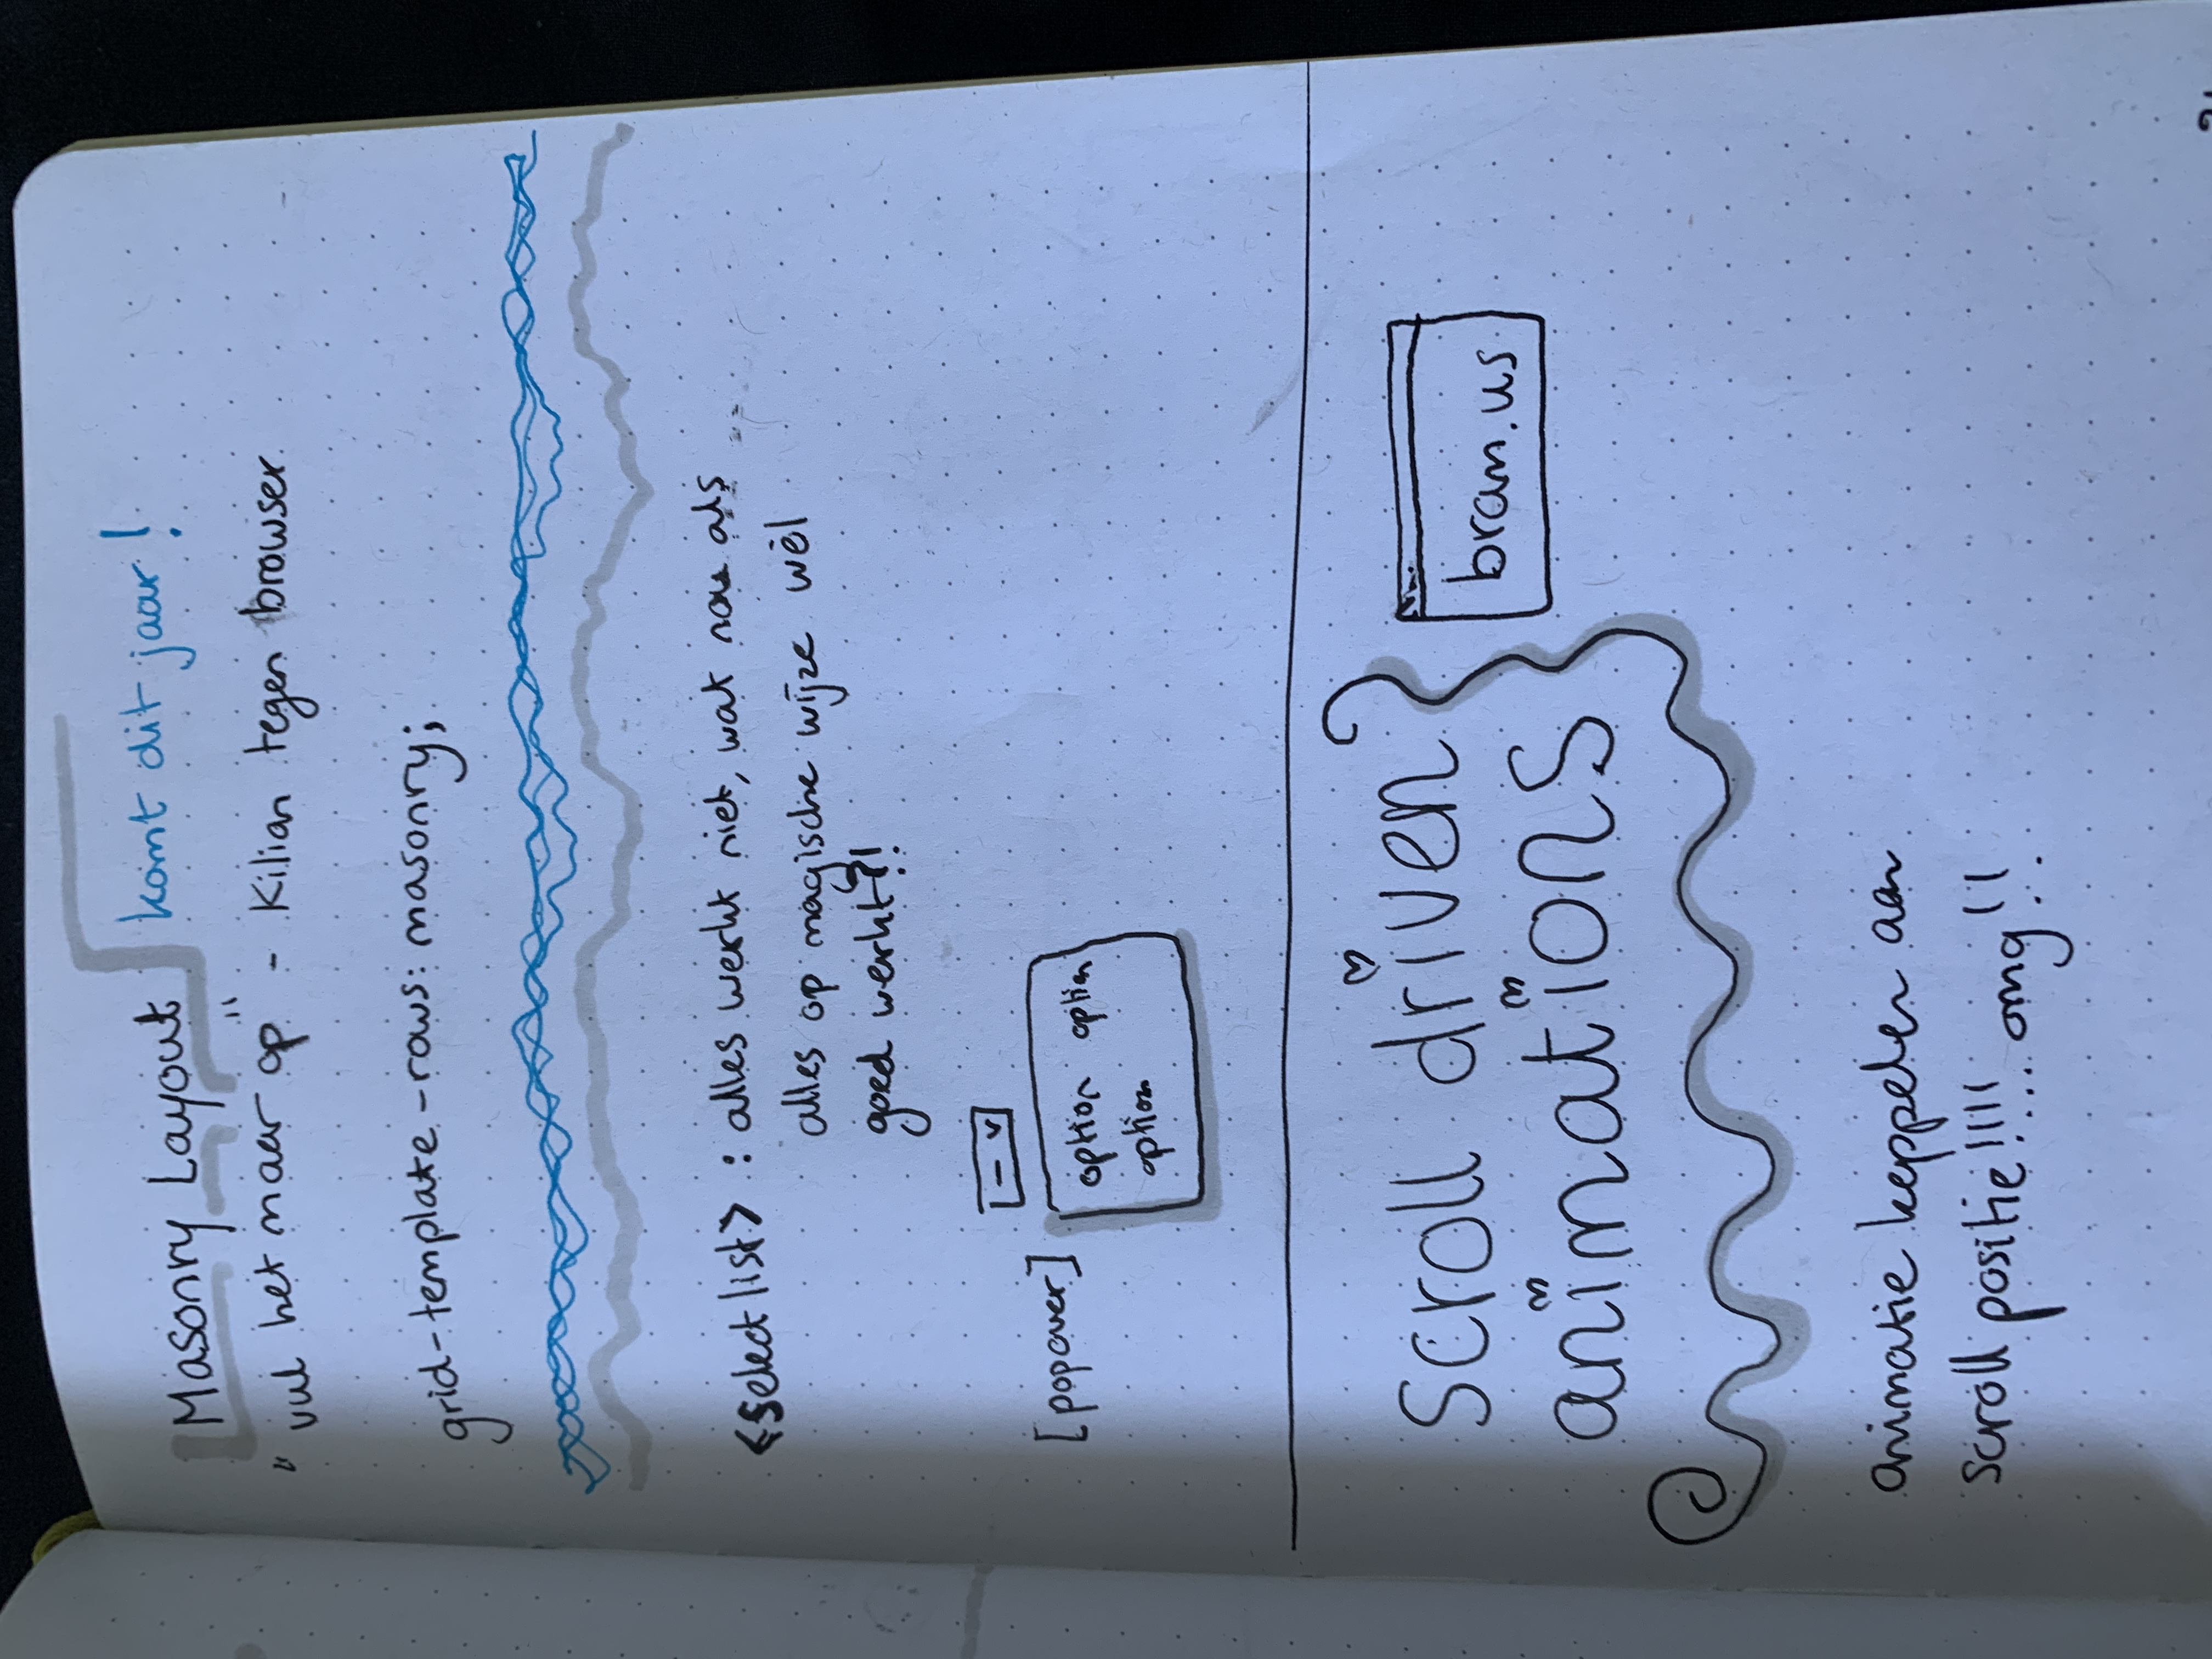 Masonry Layout komt dit jaar!
"vul het maar op" - Kilian tegen browser
grid-template-rows: masonry;
<selectlist> : alles werkt niet, wat nou als
alles op magische wijze wèl
goed werkt?!
[popover]
option option
option
scroll driven
animations
bram.us
animatie koppelen aan
scroll positie!!!! omg!!